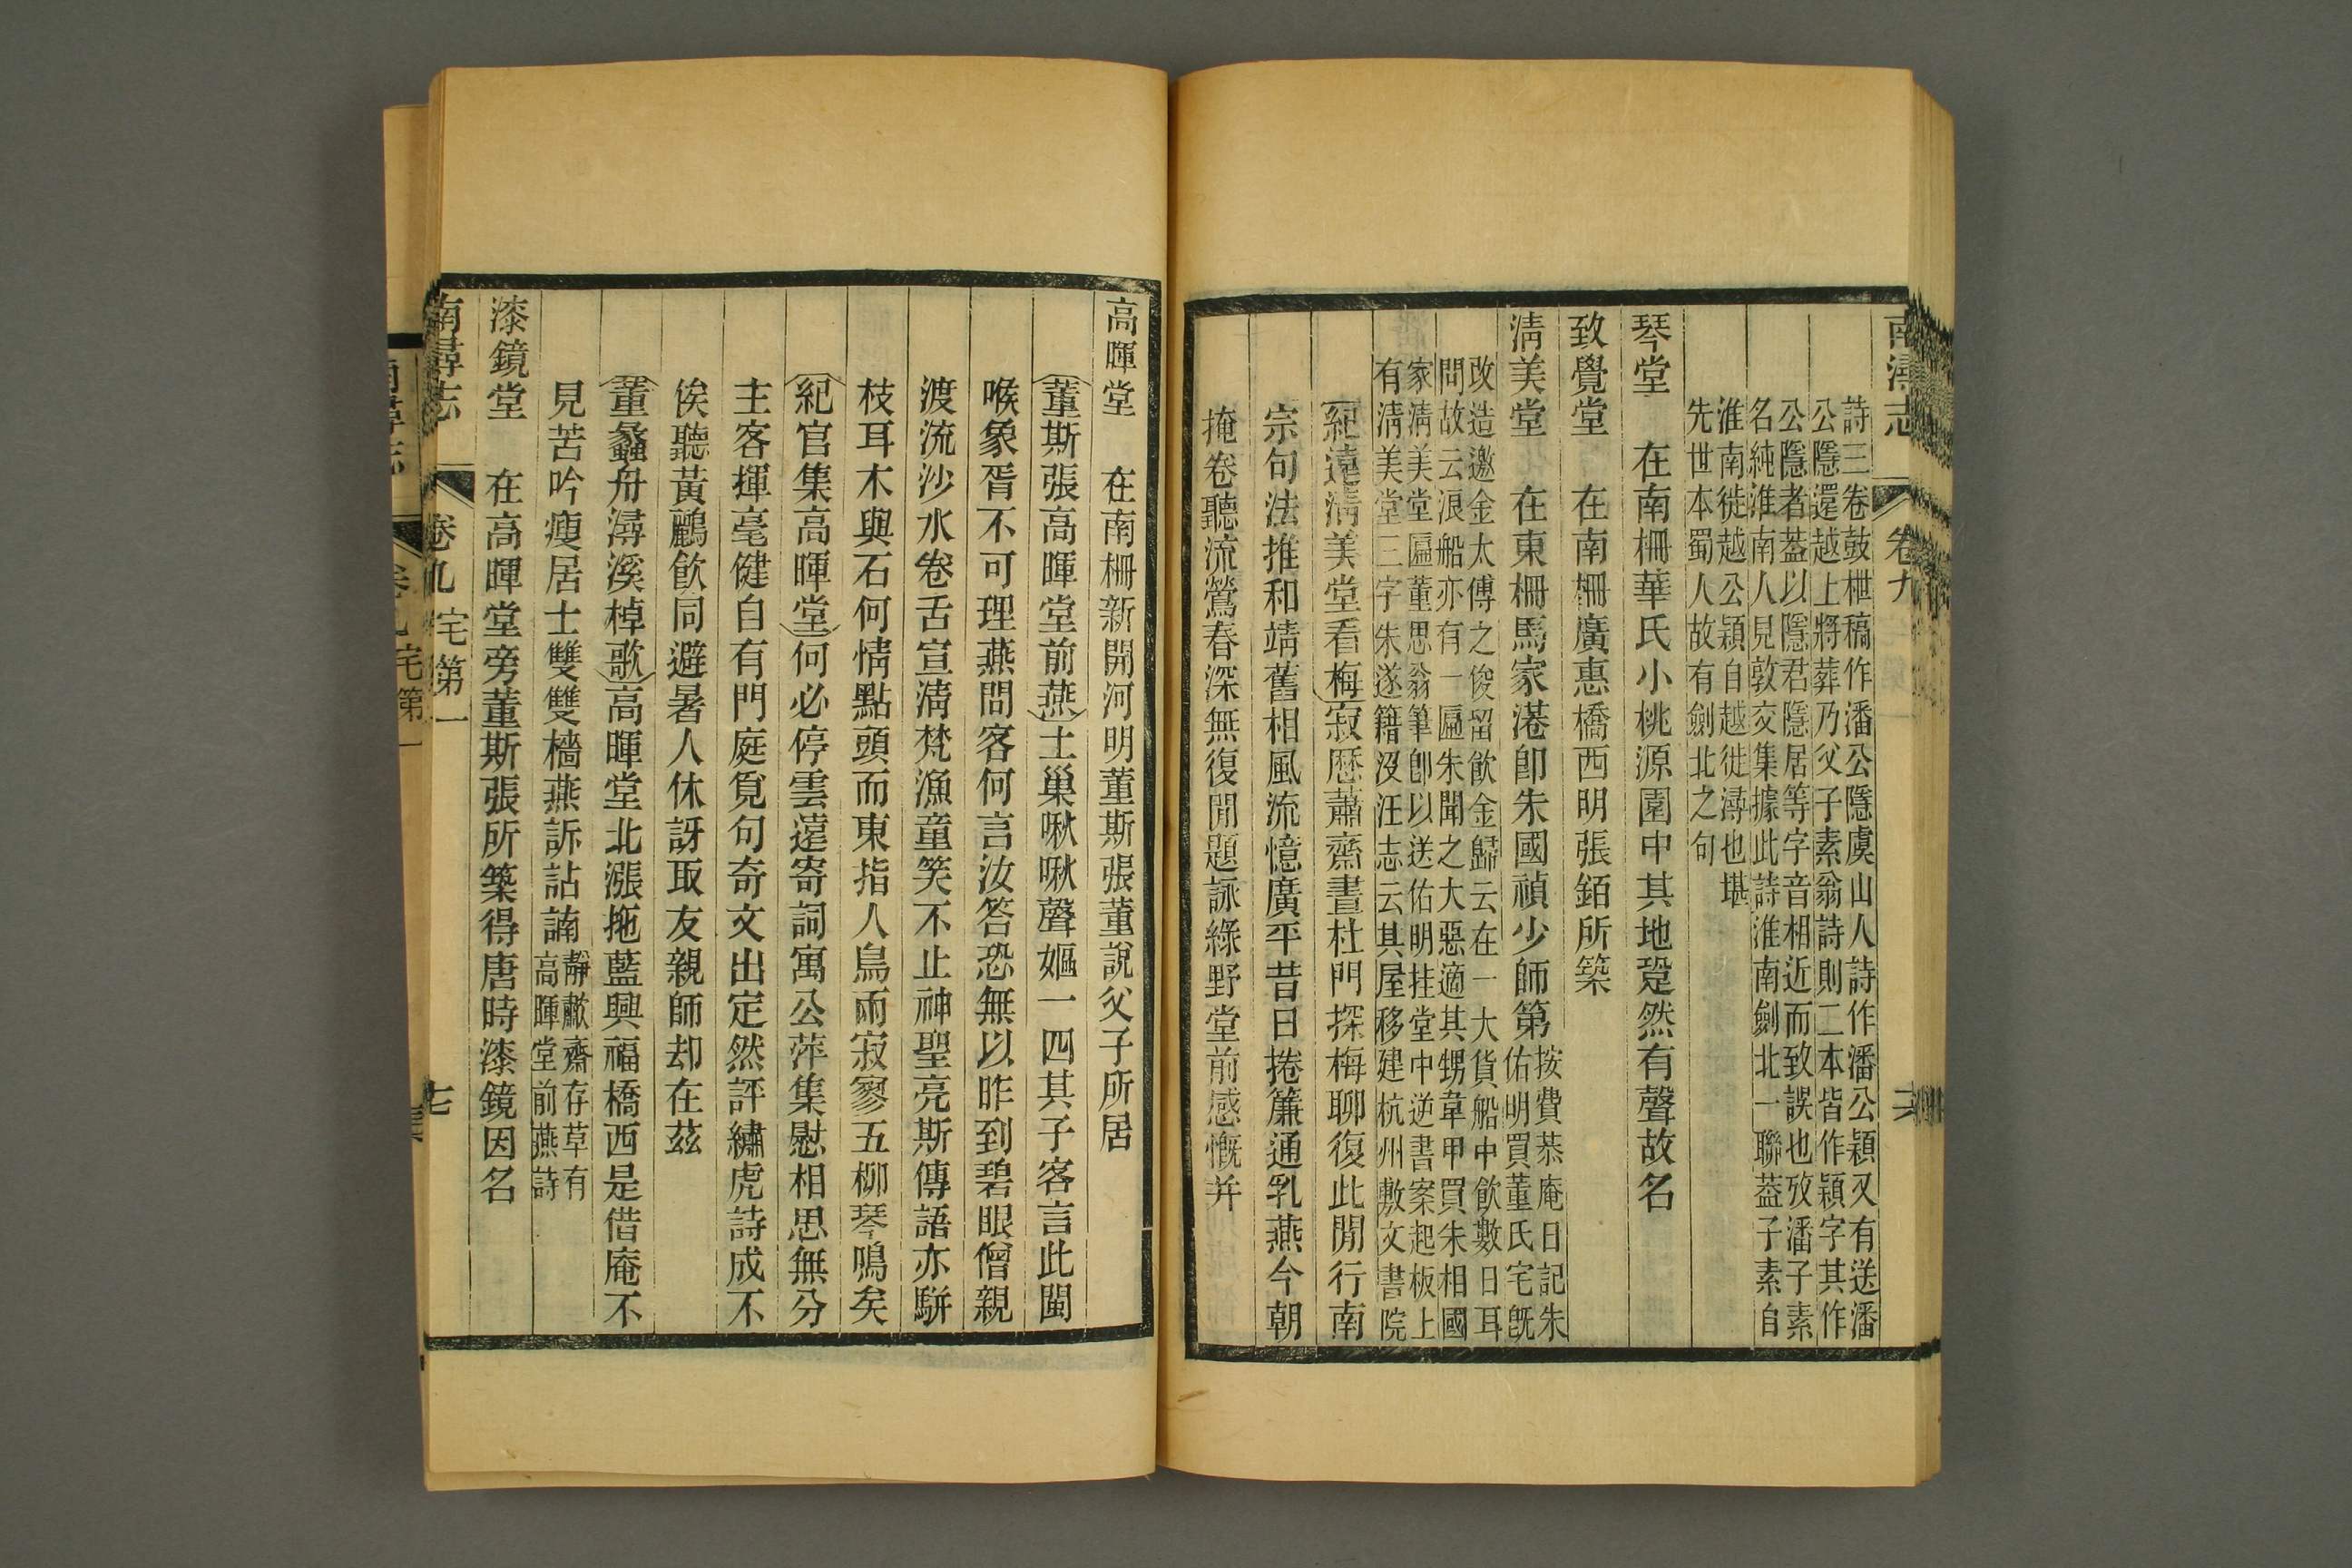 南潯志 卷九
詩三卷鼓枻稿作潘公隱虞山人詩作潘公穎又有送潘
公隱還越上將葬乃父子素翁詩則二本皆作穎字其作
公隱者葢以隱君隱居等字音相近而致誤也攷潘子素
名純淮南人見敦交集據此詩淮南劍北一聯葢子素自
淮南徙越公穎自越徙潯也堪
先世本蜀人故有劍北之句
琴堂 在南柵華氏小桃源園中其地跫然有聲故名
致覺堂 在南柵廣惠橋西明張銆所築
淸美堂 在東柵馬家港卽朱國禎少師第
按費恭庵日記朱
佑明買董氏宅旣
改造邀金太傅之俊留飮金歸云在一大貨船中飮數日耳
問故云浪船亦有一匾朱聞之大惡適其甥韋甲買朱相國
家淸美堂匾董思翁筆卽以送佑明挂堂中逆書案起板上
有淸美堂三字朱遂籍沒汪志云其屋移建杭州敷文書院
紀遠淸美堂看梅寂歷蕭齋晝杜門探梅聊復此閒行南
宗句法推和靖舊相風流憶廣平昔日捲簾通乳燕今朝
掩卷聽流鶯春深無復閒題詠綠野堂前感慨并
高暉堂 在南柵新開河明董斯張董說父子所居
董斯張高暉堂前燕土巢啾啾聲嫗一四其子客言此閩
喉象胥不可理燕問客何言汝答恐無以昨到碧眼僧親
渡流沙水卷舌宣淸梵漁童笑不止神聖亮斯傳語亦騈
枝耳木與石何情點頭而東指人鳥兩寂寥五柳琴鳴矣
紀官集高暉堂何必停雲遠寄詞寓公萍集慰相思無分
主客揮毫健自有門庭覓句奇文出定然評繡虎詩成不
俟聽黃鸝飮同避暑人休訝取友親師却在茲
董蠡舟潯溪棹歌高暉堂北漲拖藍興福橋西是借庵不
見苦吟瘦居士雙雙檣燕訴詀諵
靜歗齋存草有
高暉堂前燕詩
漆鏡堂 在高暉堂旁董斯張所築得唐時漆鏡因名
南潯志 卷九 宅第一 七